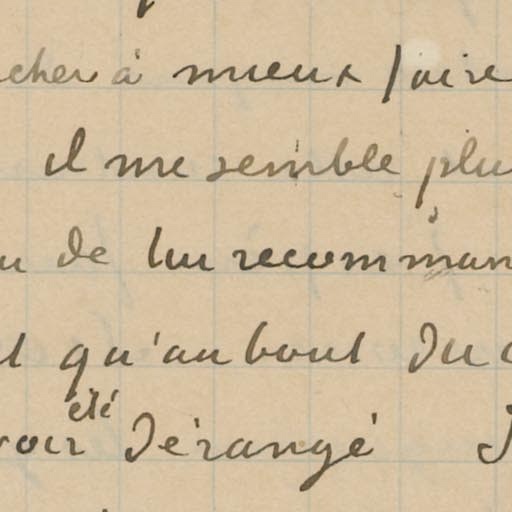 cher à mieux faire
il me semble plu
de lui recomman
qu'au bout du
été
voir dérangé